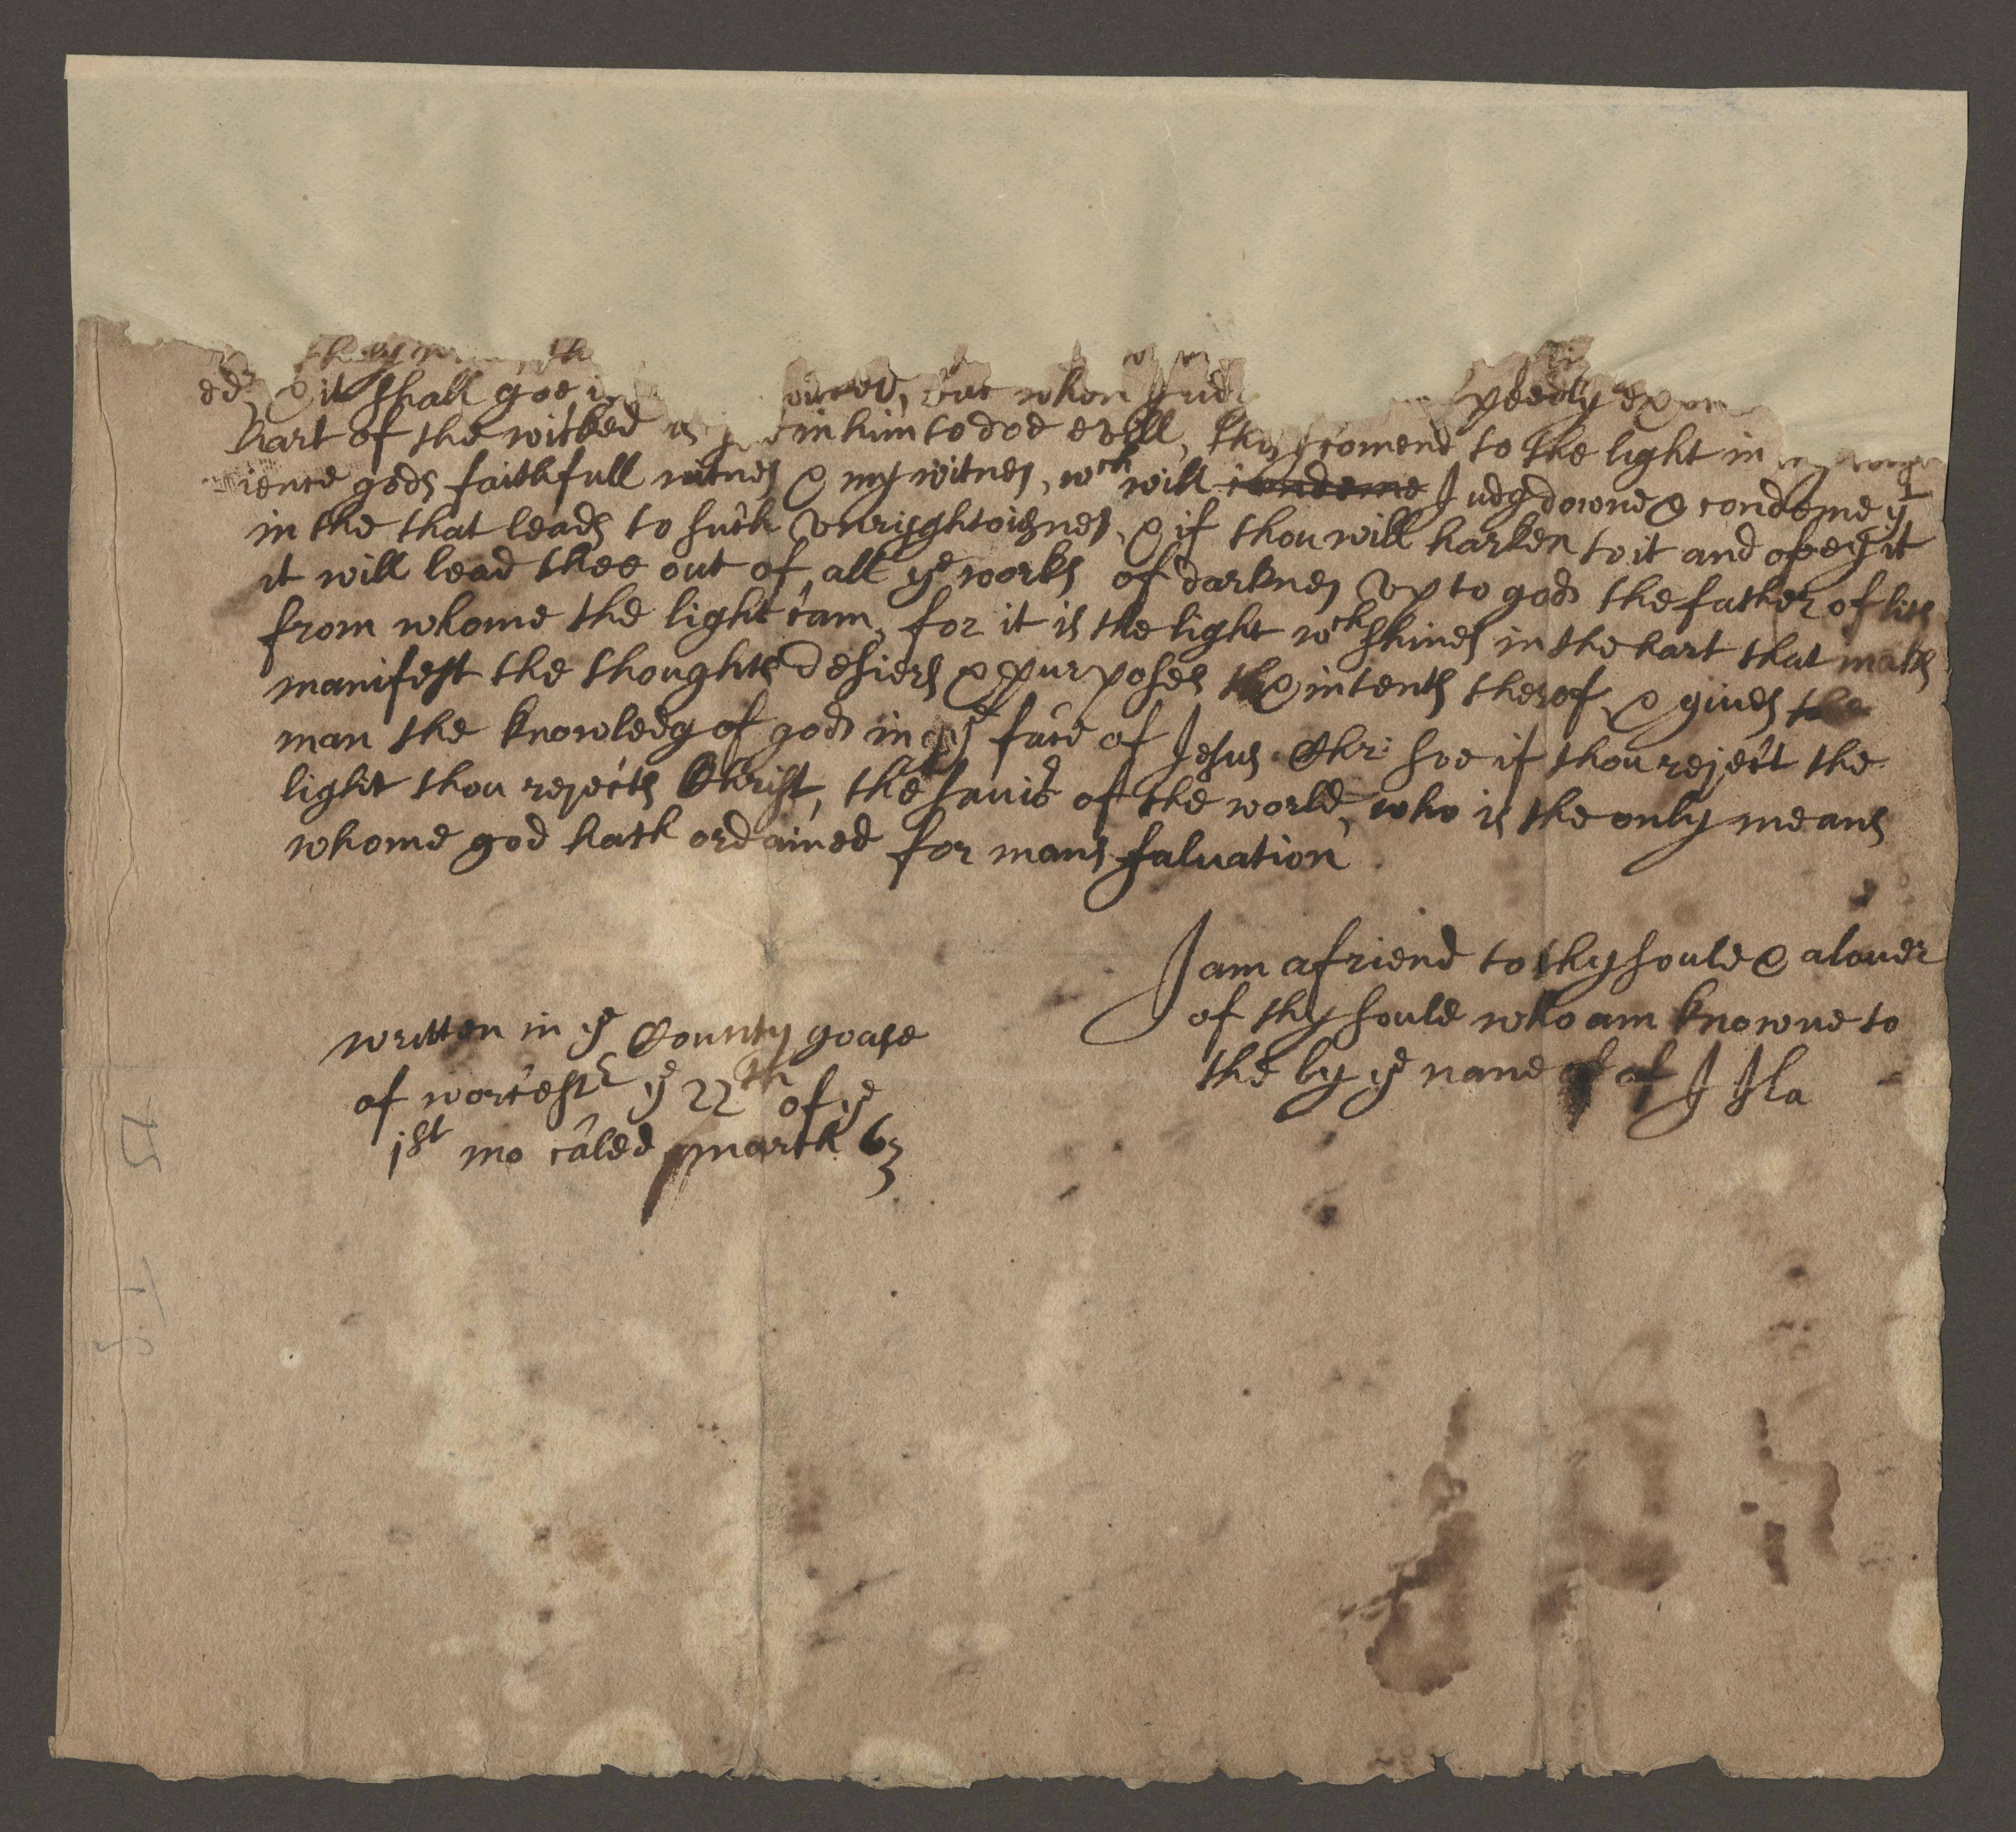 & it shall goe
hart of the wicked in him to doe evill, this I comend to the light in
ience gods faithfull witnes & my witnes, wch will condeme Judg downe & condeme yt
in the that leads to such vnrightoisnes, & if thou will harken to it and obey it
it will lead thee out of all ye works of darknes vp to god the father of lits
from whome the light cam, for it is the light wch shines in the hart that maks
manifest the thoughts desiers & purposes & intents therof, & giues
man the knowledg of god in ye face of Jesus Chr: soe if thou reject the
light thou rejects Christ, the sauior of the world, who is the only means
whome god hath ordained for mans saluation
I am a friend to thy soule & a louer
of thy soule who am knowne to
the by ye name of
written in ye County goale
of worcestr ye 22th of ye
1st mo caled march 63